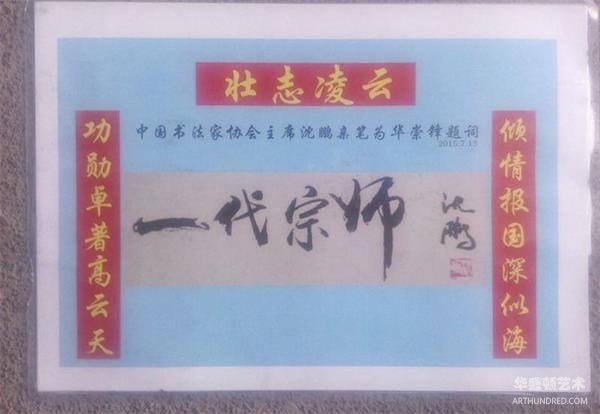 壮志凌云
倾情报国深似海
功勋卓著高云天
中国书法家协会主席沈鹏亲笔为华崇锋题词
2015.7.13
一代宗师
沈鹏
华盛顿艺术
ARTHUNDRED.COM